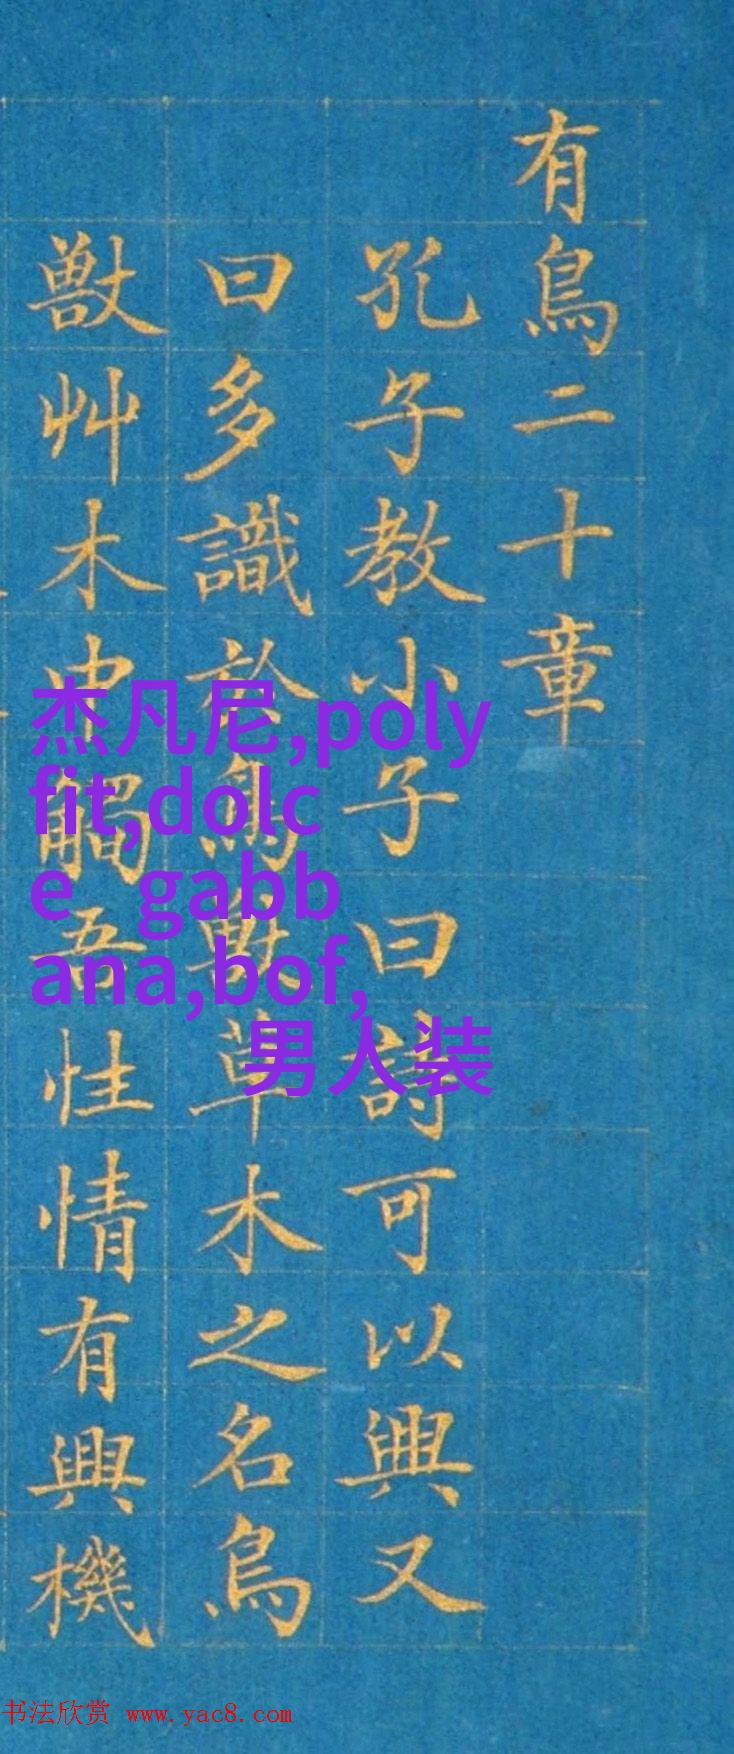 有鳥二十章
孔子教小子曰詩可以興又
曰多識於鳥獸草木之名鳥
獸艸木中觸吾性情有興機
杰凡尼,poly
fit,dolc
e gabb
ana,bof,
男人装
书法欣赏 www.yac8.com